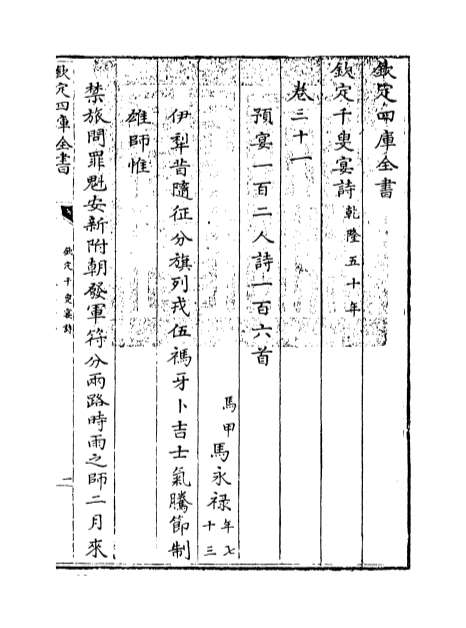 欽定四庫全書
欽定千叟宴詩 乾隆五十年
卷三十一
預宴一百二人詩一百六首
馬甲馬永祿年七十三
伊犁昔隨征分旗列戎伍禡牙卜吉士氣騰節制
雄師惟
禁旅問罪魁安新附朝發軍符分兩路時雨之師二月來
欽定四庫全書
欽定千叟宴詩
一